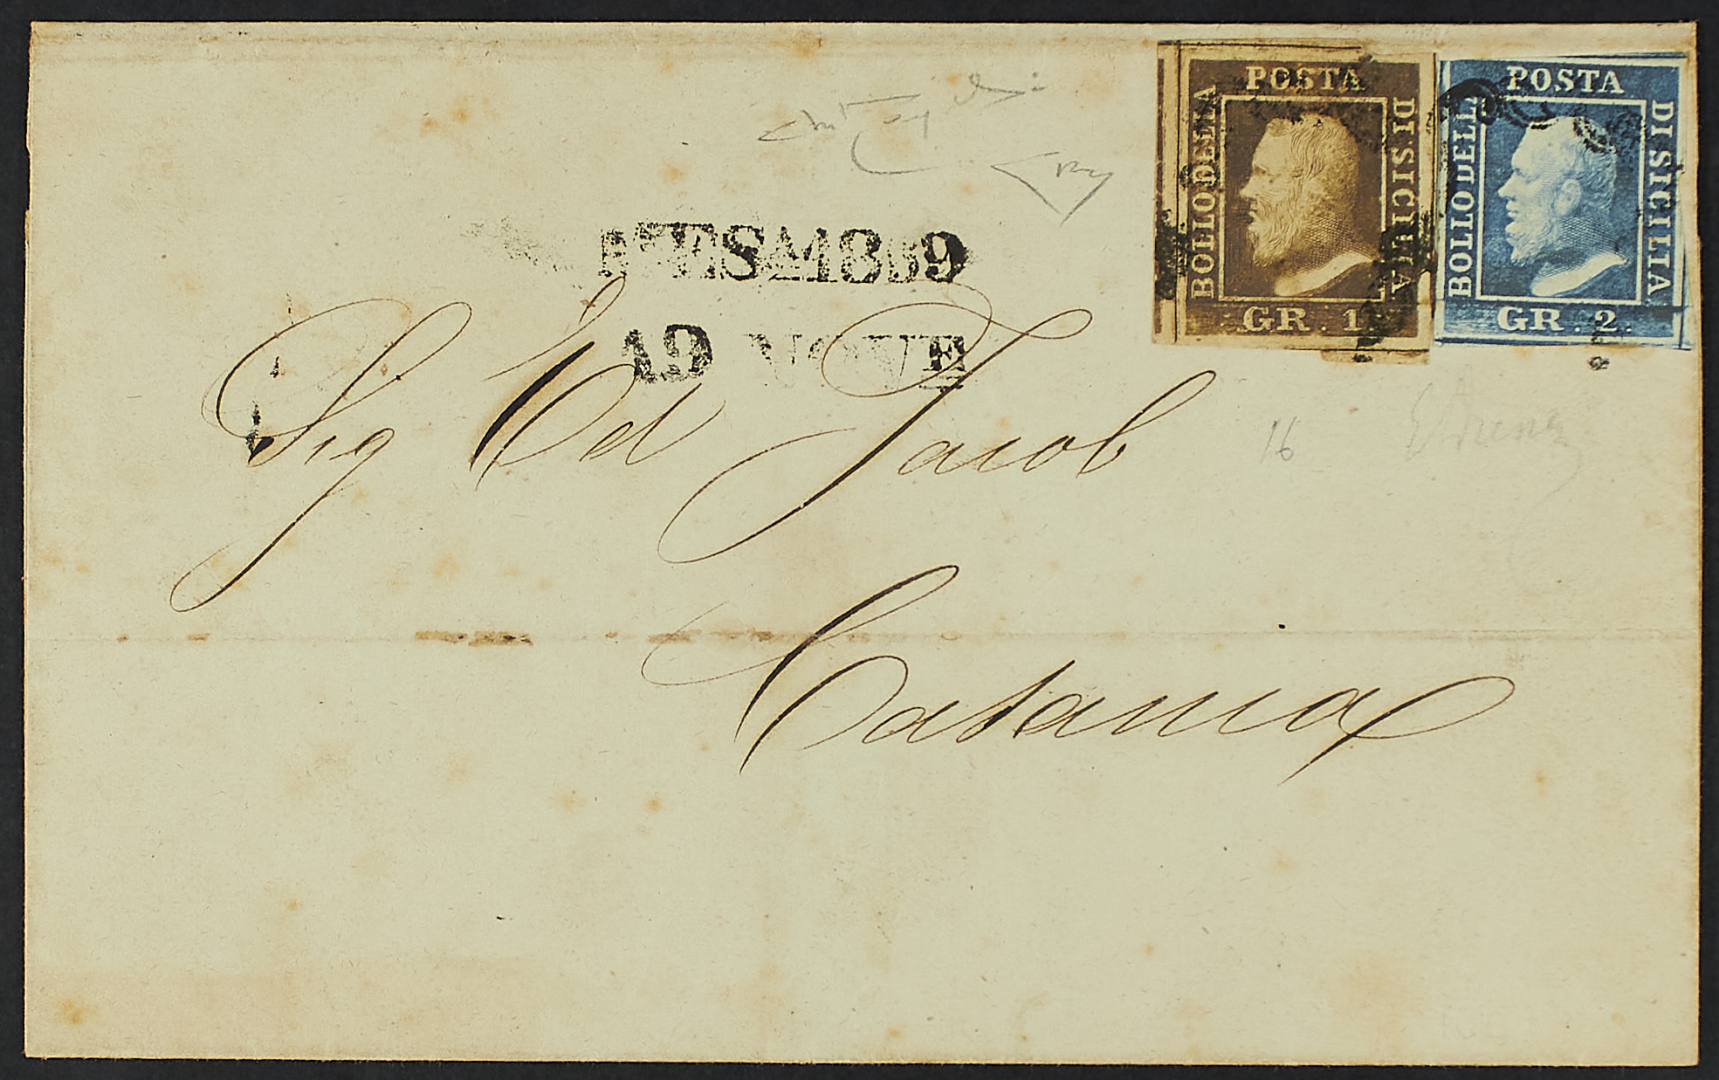 POSTA
BOLLO DELLA
DI SICILIA
GR. 1
POSTA
BOLLO DELLA
DI SICILIA
GR. 2.
MES 1859
19 NOVE
Sig Ed Jacob
16
Catania